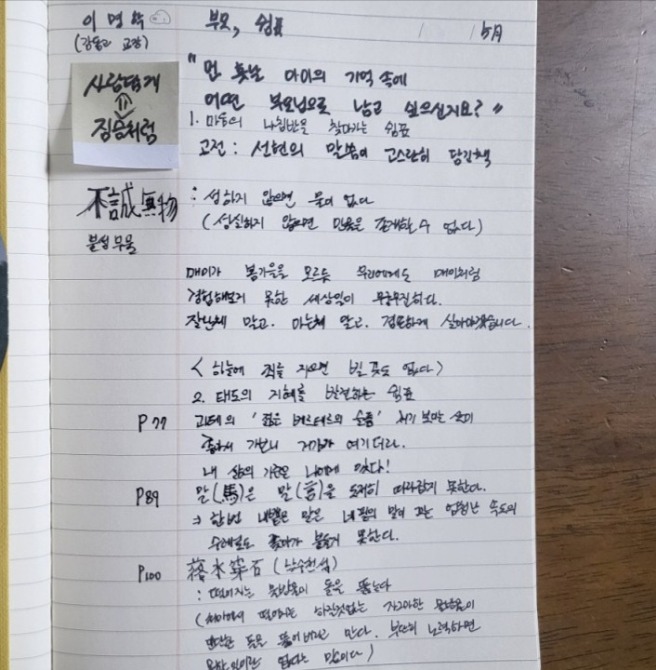 이명학
부모, 쉼표
5月
(강동고 교장)
사람답게
짐승처럼
"먼 훗날 아이의 기억 속에
어떤 부모님으로 남고 싶으신지요?"
1. 마음의 나침반을 찾아가는 쉼표
고전 : 선현의 말씀이 고스란히 담긴 책
不誠無物
불성무물
: 성하지 않으면 물이 없다
(성실하지 않으면 만물은 존재할 수 없다)
매미가 봄가을을 모르듯 우리에게도 매미처럼
경험해보지 못한 세상일이 무궁무진하다.
잘난체 말고. 아는체 말고. 겸손하게 살아야겠습니다.
<하늘에 죄를 지으면 빌 곳도 없다>
2. 태도의 지혜를 발견하는 쉼표
P77 괴테의 '젊은 베르테르의 슬픔'
거기가 여기더라.
내 삶의 기준은 나에게 있다!
P89 말(馬)은 말(言)을 도저히 따라잡지 못한다.
→ 한번 내뱉은 말은 네 필의 말이 끄는 엄청난 속도의
수레로도 쫓아가 붙잡지 못한다.
P100 落水穿石 (낙수천석)
: 떨어지는 물방울이 돌을 뚫는다
(처마에서 떨어지는 하찮것없는 자그마한 물방울이
단단한 돌을 뚫어버리고 만다. 부단히 노력하면
없다는 말이다)